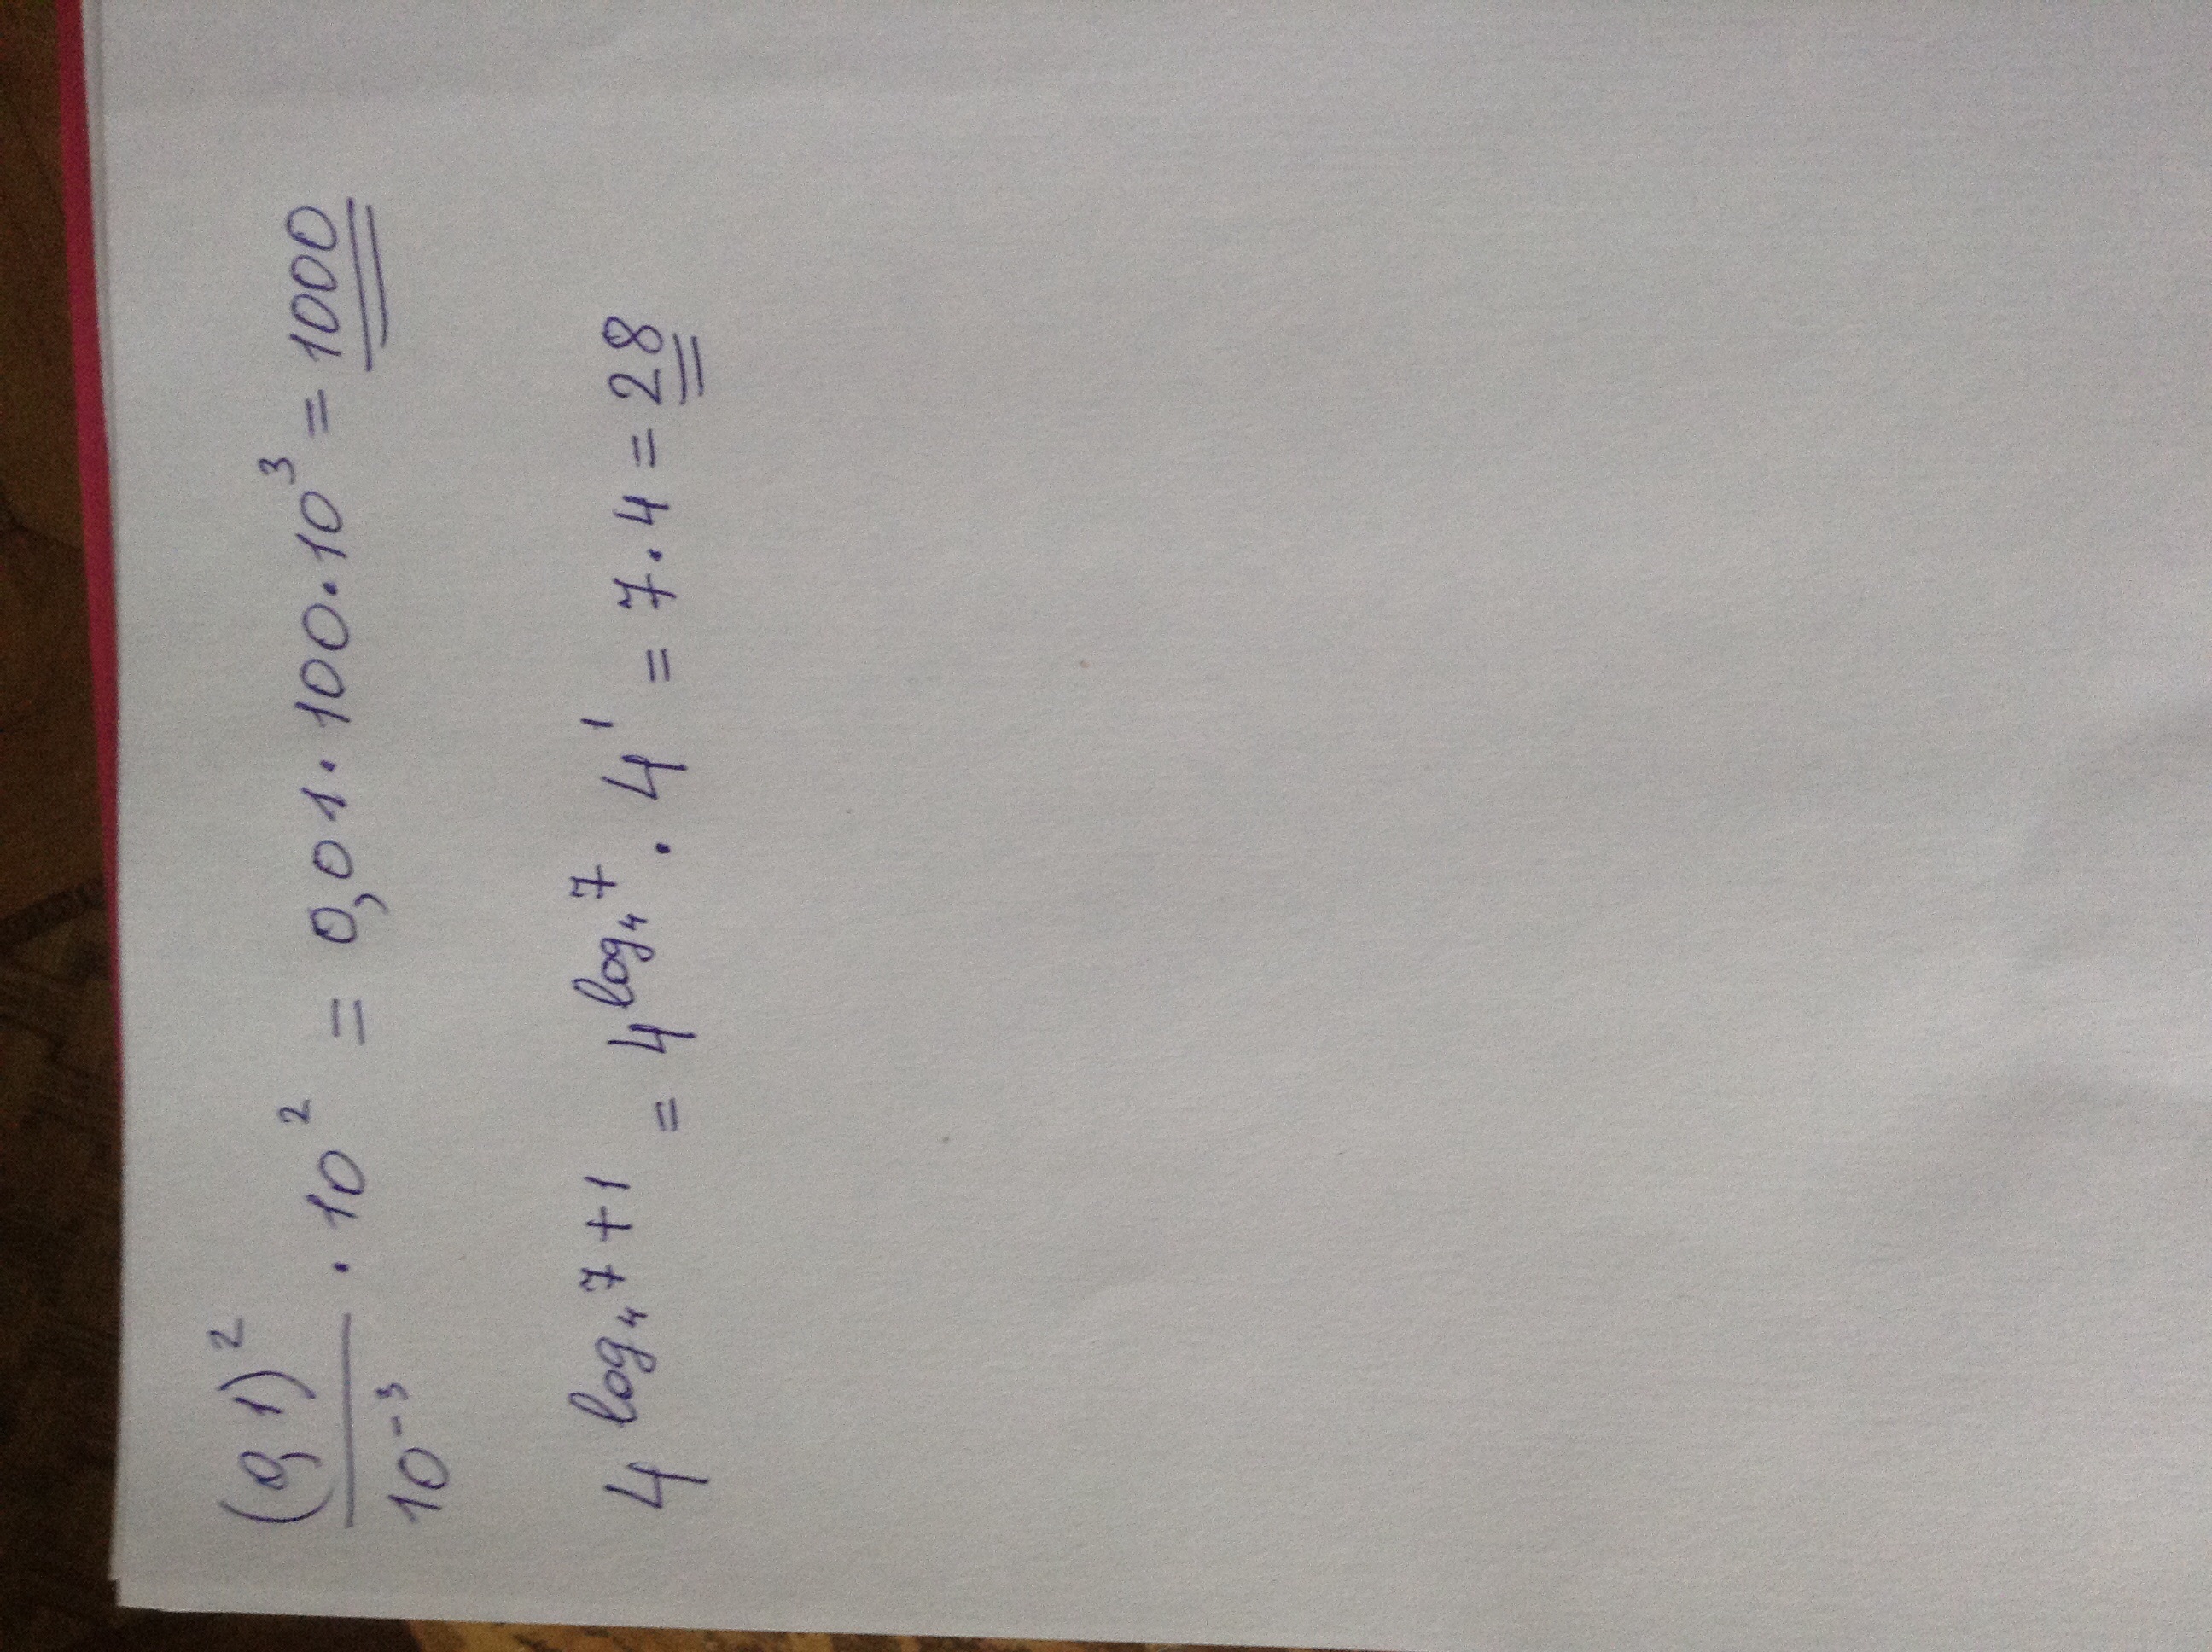 (0,1)² / 10⁻³ · 10² = 0,01 · 100 · 10³ = 1000
4^(log₄7+1) = 4^(log₄7) · 4¹ = 7 · 4 = 28